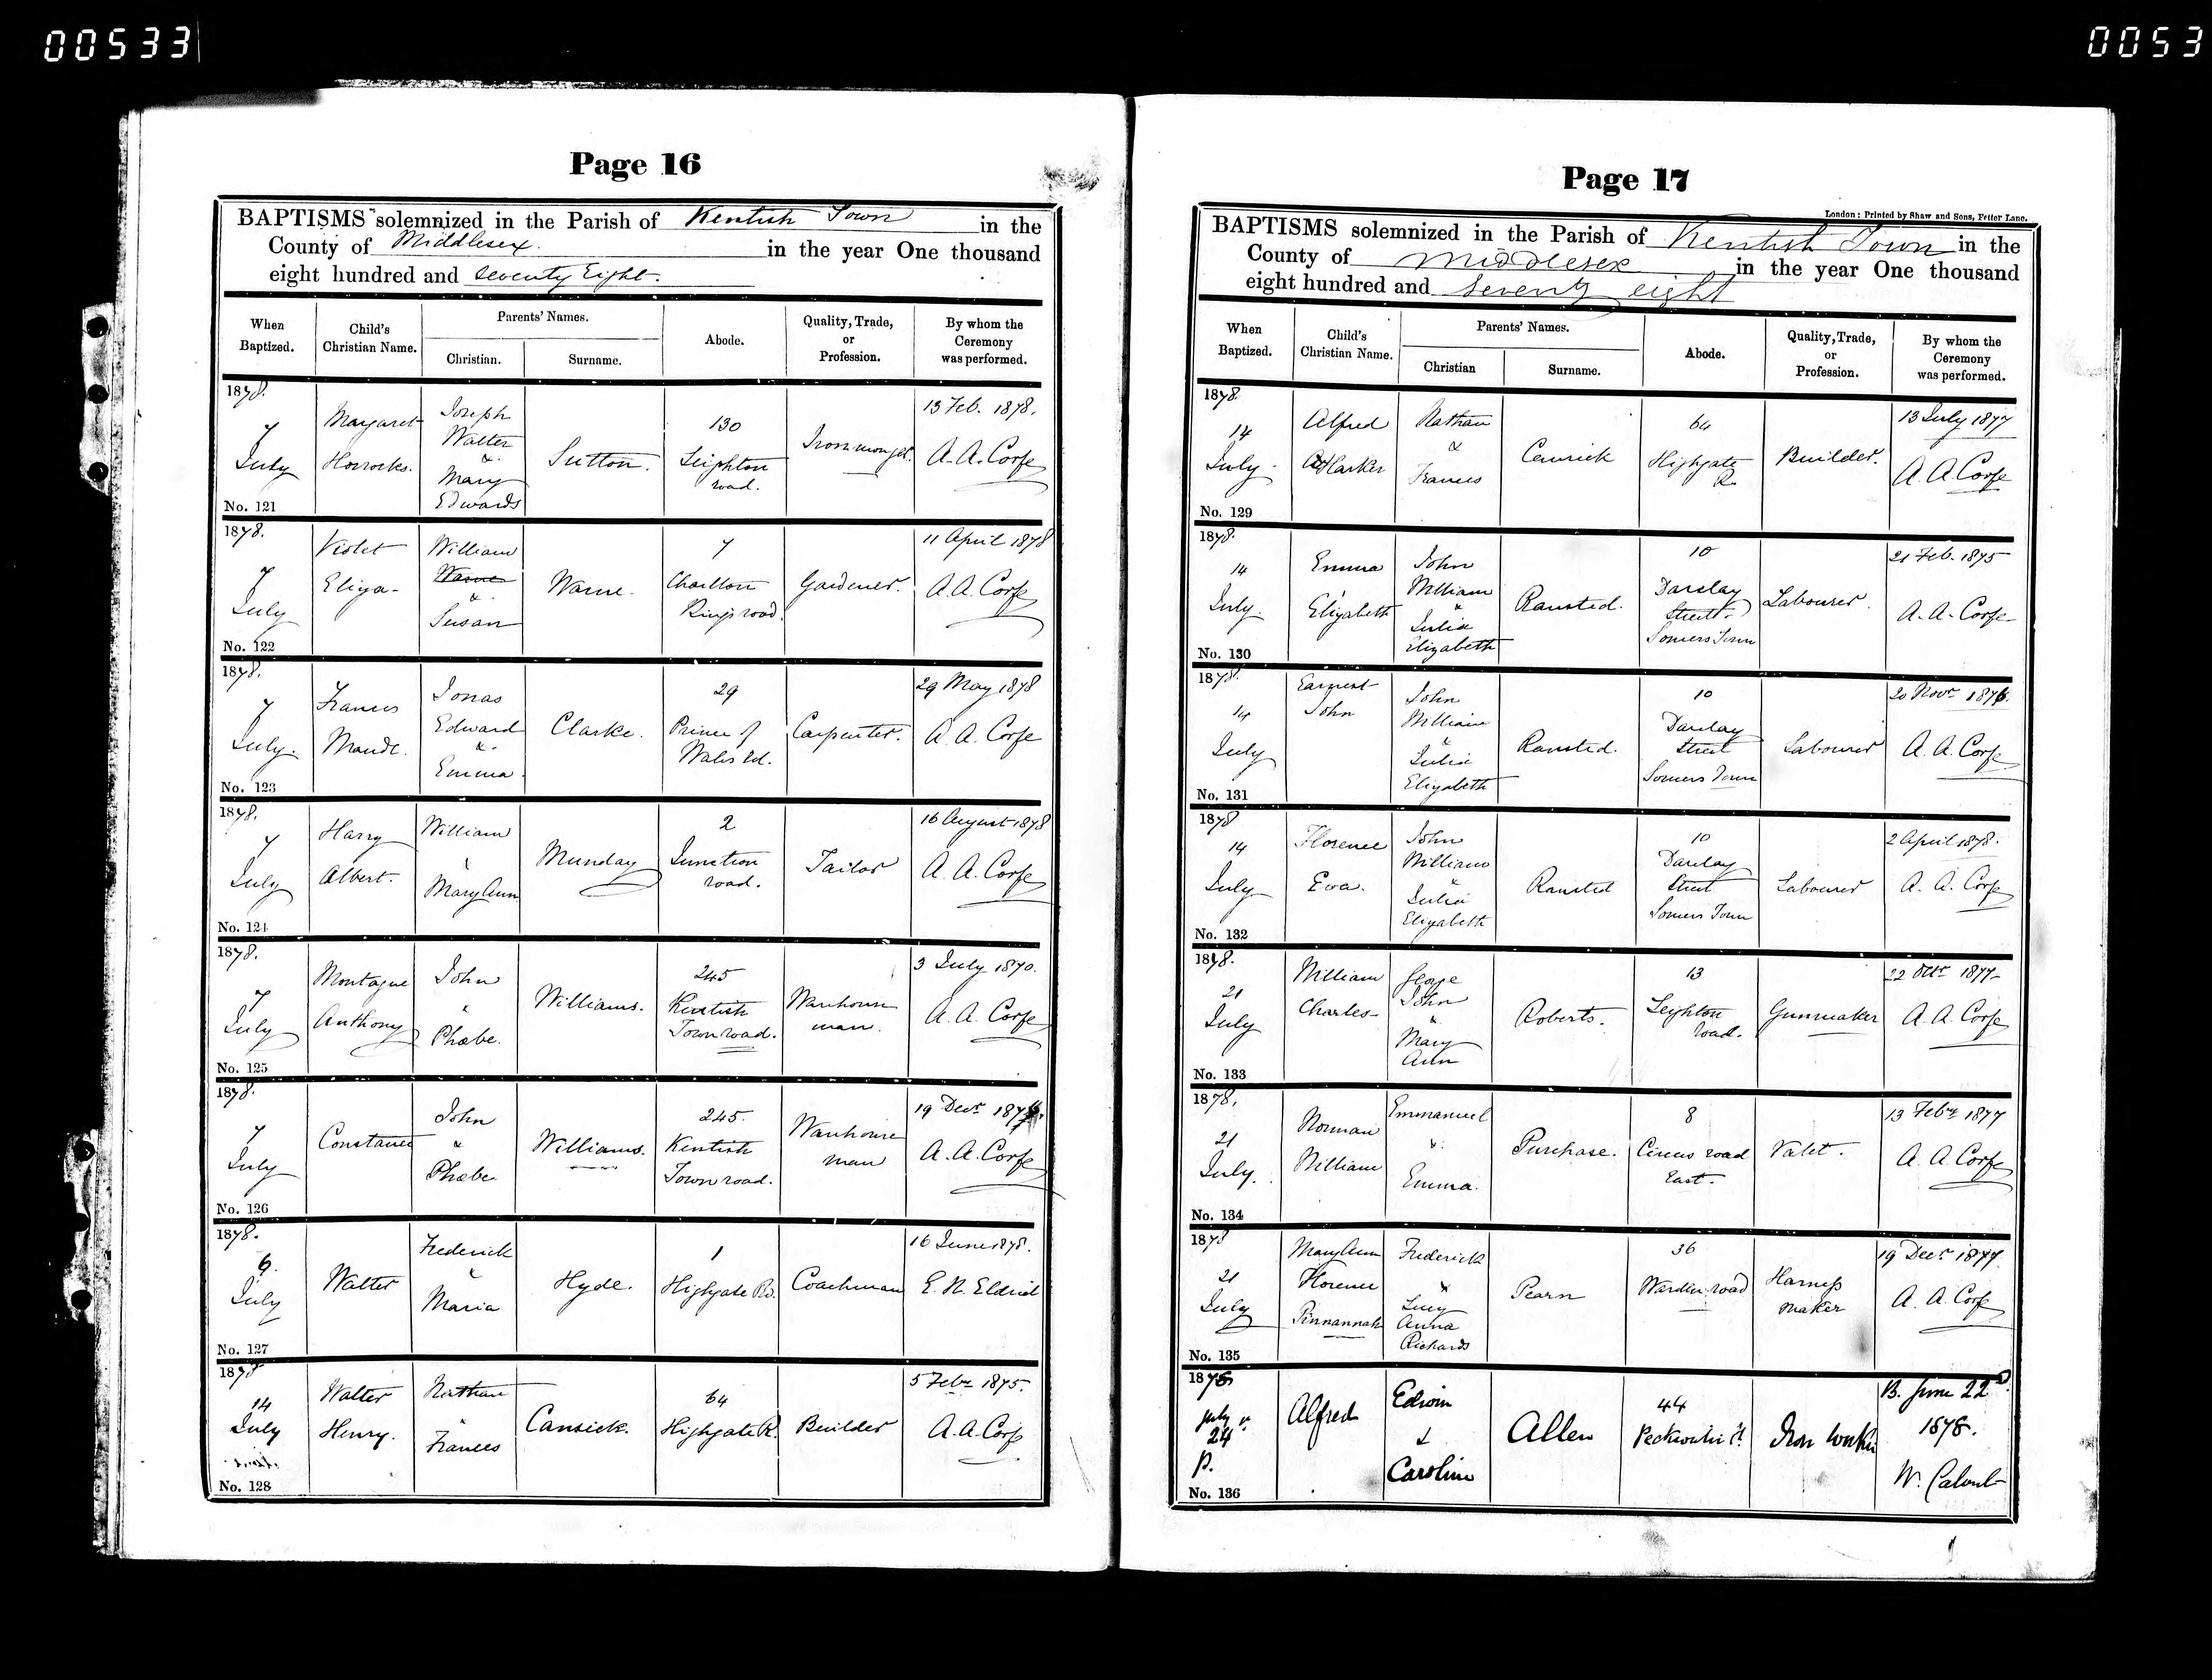 00533
0053
Page 16
BAPTISMS solemnized in the Parish of Kentish Town in the
County of Middlesex. in the year One thousand
eight hundred and seventy Eight.
When Baptized.
Child's Christian Name.
Parents' Names.
Christian.
Surname.
Abode.
Quality, Trade, or Profession.
By whom the Ceremony was performed.
1878.
7
July
No. 121
Margaret
Horrocks.
Joseph
Walter
&
Mary
Edwards
Sutton.
130
Leighton
road.
Ironmonger.
13 Feb. 1878.
A. A. Corfe
1878.
7
July
No. 122
Violet
Eliza-
William
Warne
&
Susan
Warne.
7
Charlton
Kings road.
Gardener.
11 April 1878
A. A. Corfe
1878.
7
July.
No. 123
Frances
Maude.
Jonas
Edward
&
Emma.
Clarke.
29
Prince of
Wales Rd.
Carpenter.
29 May 1878
A. A. Corfe
1878.
7
July
No. 124
Harry
Albert.
William
&
Mary Ann
Munday
2
Junction
road.
Tailor
16 August 1878
A. A. Corfe
1878.
7
July
No. 125
Montague
Anthony
John
&
Phœbe.
Williams.
245
Kentish
Town road.
Warehouse
man.
3 July 1870.
A. A. Corfe
1878.
7
July
No. 126
Constance
John
&
Phœbe
Williams.
245.
Kentish
Town road.
Warehouse
man
19 Decr
A. A. Corfe
1878.
July
No. 127
Walter
Frederick
&
Maria
Hyde.
1
Highgate Rd.
Coachman
16 June 1878.
E. N.
1878
14
July
No. 128
Walter
Henry.
Nathan
&
Frances
Cansick.
64
Highgate R.
Builder
5 Feby 1875.
A. A. Corfe
Page 17
London: Printed by Shaw and Sons, Fetter Lane.
BAPTISMS solemnized in the Parish of Kentish Town in the
County of Middlesex in the year One thousand
eight hundred and seventy eight
When Baptized.
Child's Christian Name.
Parents' Names.
Christian
Surname.
Abode.
Quality, Trade, or Profession.
By whom the Ceremony was performed.
1878.
14
July.
No. 129
Alfred
Harker
Nathan
&
Frances
Cansick
64
Highgate
R.
Builder.
13 July 1877
A. A. Corfe
1878.
14
July.
No. 130
Emma
Elizabeth
John
William
&
Julia
Elizabeth
Ransted.
10
Street.
Somers Town
Labourer.
21 Feb. 1875
A. A. Corfe
1878.
14
July
No. 131
Earnest
John
John
William
&
Julia
Elizabeth
Ransted.
10
Street
Somers Town
Labourer
20 Novr 1876.
A. A. Corfe
1878
14
July
No. 132
Florence
Eva.
John
William
&
Julia
Elizabeth
Ransted
10
Street
Somers Town
Labourer
2 April 1878.
A. A. Corfe
1878.
21
July
No. 133
William
Charles
George
John
&
Mary
Ann
Roberts.
13
Leighton
road.
Gunmaker
22 Octr 1877
A. A. Corfe
1878.
21
July.
No. 134
Norman
William
Emmanuel
&
Emma.
Purchase.
8
Circus road
East.
Valet.
13 Feby 1877
A. A. Corfe
1878
21
July
No. 135
Mary Ann
Florence
Pinnannah
Frederick
&
Lucy
Anna
Richards
Pearn
36
Warden road
Harness
maker
19 Decr 1877.
A. A. Corfe
1878
July
24
p.
No. 136
Alfred
Edwin
&
Caroline
Allen
44
Peckwater St.
Iron worker
B. June 22d.
1878.
W. Calvert